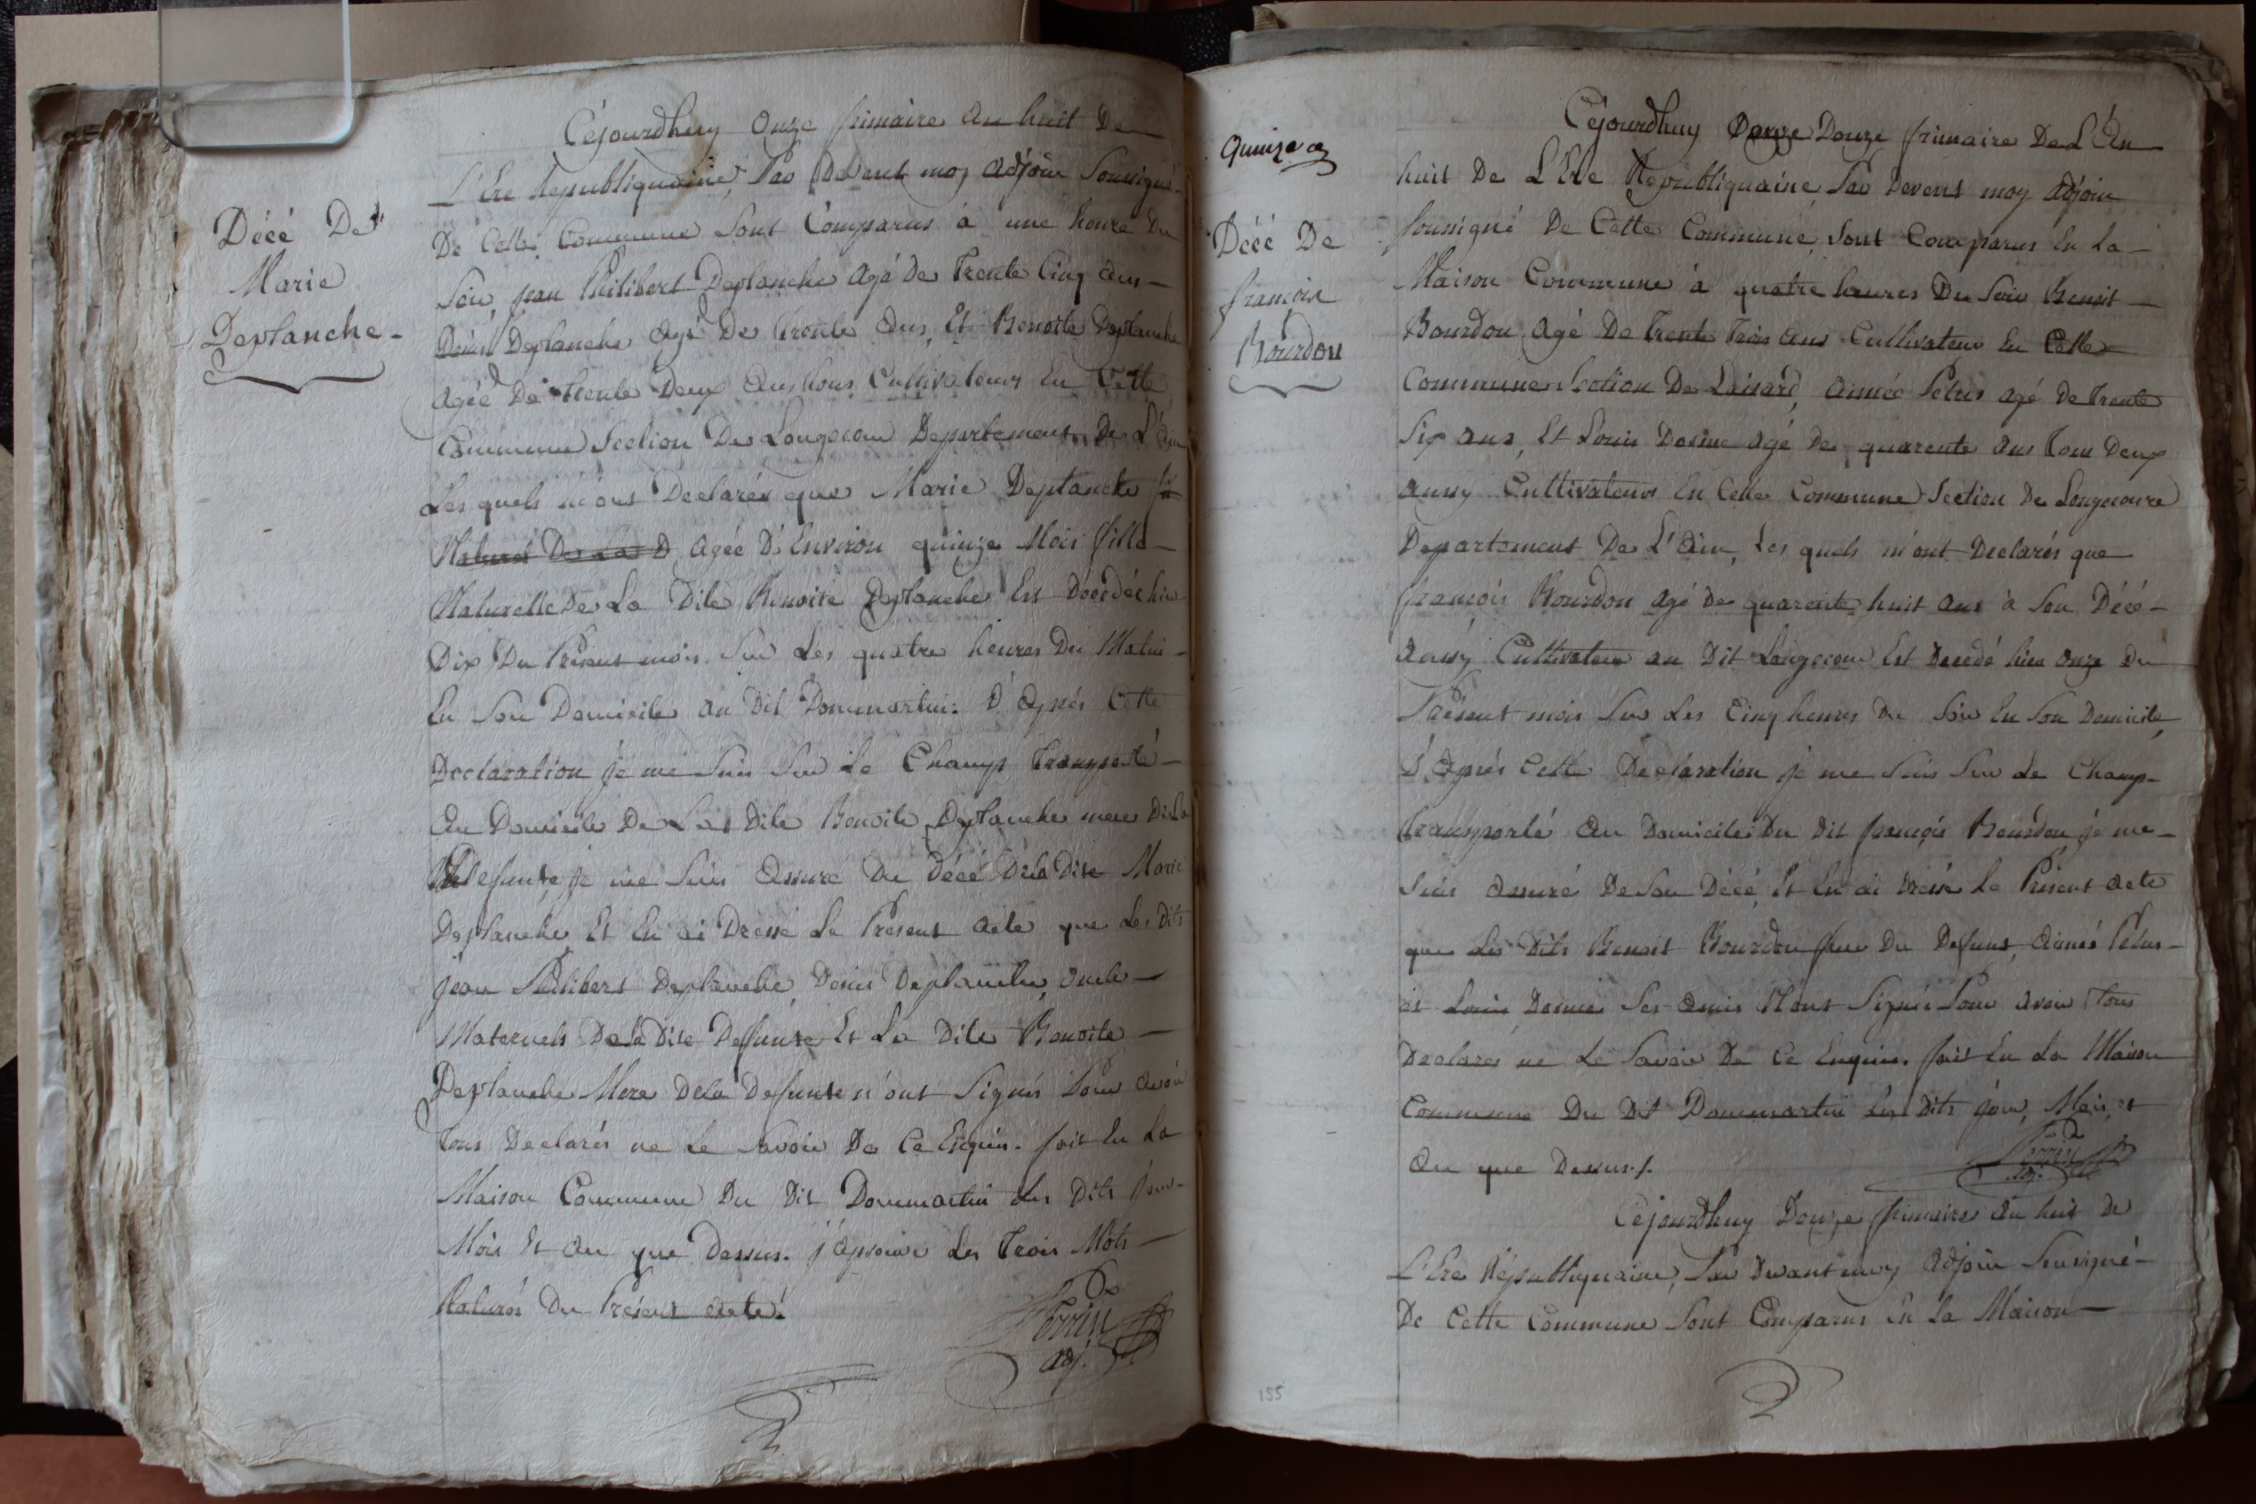 Décé De
Marie
Deplanche
Céjourdhuy Onze frimaire an huit De
L'Ere Republiquaine, Par Devent moy adjoin Soussigné
De Cette Commune Sont Comparus à une heure Du
Soir, jean Philibert Deplanche agé De Trente Cinq ans
Denis Deplanche agé De trente ans, Et Benoite Deplanche
agée De trente Deux ans tous Cultivateurs En Cette
Commune Section De Longecour Departement De L'ain
Les quels m'ont Declarés que Marie Deplanche
Naturel De La D agée D'Environ quinze Mois fille
Naturelle De La Dite Benoite Deplanche Est Décédée hier
Dix Du Présent mois Sur Les quatre heures Du Matin
En Son Domicile au Dit Dommartin. D'après Cette
Declaration je me Suis Sur Le Champ Transporté
au Domicile De La Dite Benoite Deplanche mere De La
Defunte, je me Suis assuré Du Décé De la Dite Marie
Deplanche Et En ai Dressé Le Présent acte que Les Dits
jean Philibert Deplanche, Denis Deplanche, oncle
Maternels De la Dite Defunte Et La Dite Benoite
Deplanche Mere De la Defunte n'ont Signés Pour avoir
tous Declarés ne Le Savoir De Ce Enquis. fait En La
Maison Commune Du Dit Dommartin Les Dits jour
Mois Et an que Dessus. j'aprouve Les Trois Mots
Raturés Du Présent acte
Perrin
adj.
quinze
Décé De
françois
Bourdon
Céjourdhuy Douze frimaire De L'An
huit De L'Ere Républiquaine, Par Devent moy adjoin
soussigné De Cette Commune, Sont Comparus En La
Maison Commune à quatre heures Du Soir Benoit
Bourdon agé De Trente Trois ans Cultivateur En Cette
Commune Section De Laisard, aimée Pelus agé De Trente
Six ans, Et Louis Dosine agé De quarente ans tous Deux
aussy Cultivateurs En Cette Commune Section De Longecoure
Departement De L'ain, Les quels m'ont Declarés que
françois Bourdon agé De quarente huit ans à Son Décé
aussy Cultivateur au Dit Longecour Est Decedé hier onze Du
Présent mois Sur Les Cinq heures Du Soir En Son Domicile,
D'après Cette Déclaration je me Suis Sur Le Champ
transporté au Domicile Du Dit françois Bourdon je me
Suis assuré De Son Décé, Et En ai Dressé Le Présent acte
que Les Dits Benoit Bourdon Du Defunt, aimés Pelus
et Louis Ses amis N'ont Signés Pour avoir Tous
Declarés ne Le Savoir De Ce Enquis. fait En La Maison
Commune Du Dit Dommartin Les Dits jour, Mois, et
an que Dessus./.
Perrin
adj.
Céjourdhuy Douze frimaire an huit De
L'Ere Républiquaine, Par Devant moy adjoin Soussigné
De Cette Commune Sont Comparus En La Maison
155